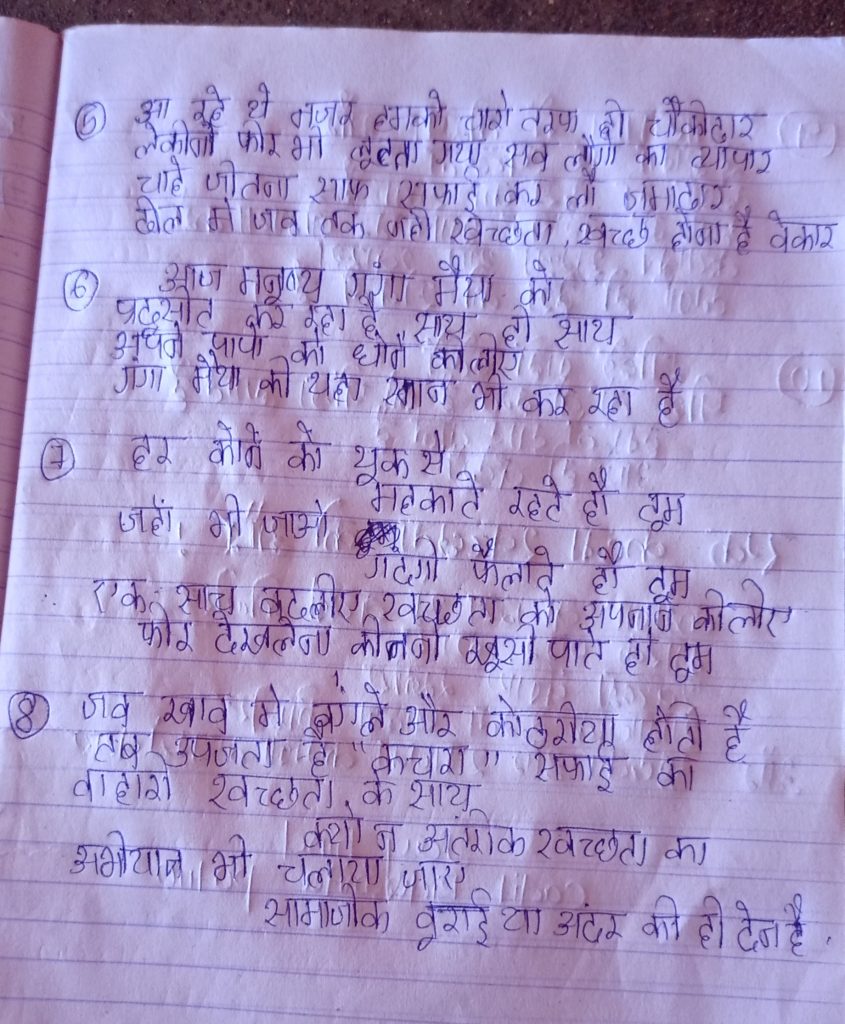 ⑤ आ रहे थे नजर हमको चारो तरफ ही चौकीदार
लेकीनी फीर भी लूटता गया सब लोगो का व्यापार
चाहे जीतना साफ सफाई कर लो जमादार
दील मे जब तक नही स्वच्छता, स्वच्छ होना है बेकार
⑥ आज मनुष्य गंगा मैया को
प्रदुसीत कर रहा है साथ ही साथ
अपने पापो को धोने कीलीए
गंगा मैया की यहा स्नान भी कर रहा है
⑦ हर कोने को थूक से
महकाते रहते हो तूम
जहाँ भी जाओ
गंदगी फैलाते हो तूम
एक साच बदलीए स्वच्छता को अपनाने कीलीए
फीर देखलेना कीतनी खूसी पाते हो तूम
⑧ जब ख्वाव मे बंगले और कोठरीया होती है
तब उपजता है "कचरा" सफाई का
बाहारी स्वच्छता के साथ
क्यो न अंतरीक स्वच्छता का
अभीयान भी चलाया जाए
सामाजीक बूराई या अंदर की ही देन है.